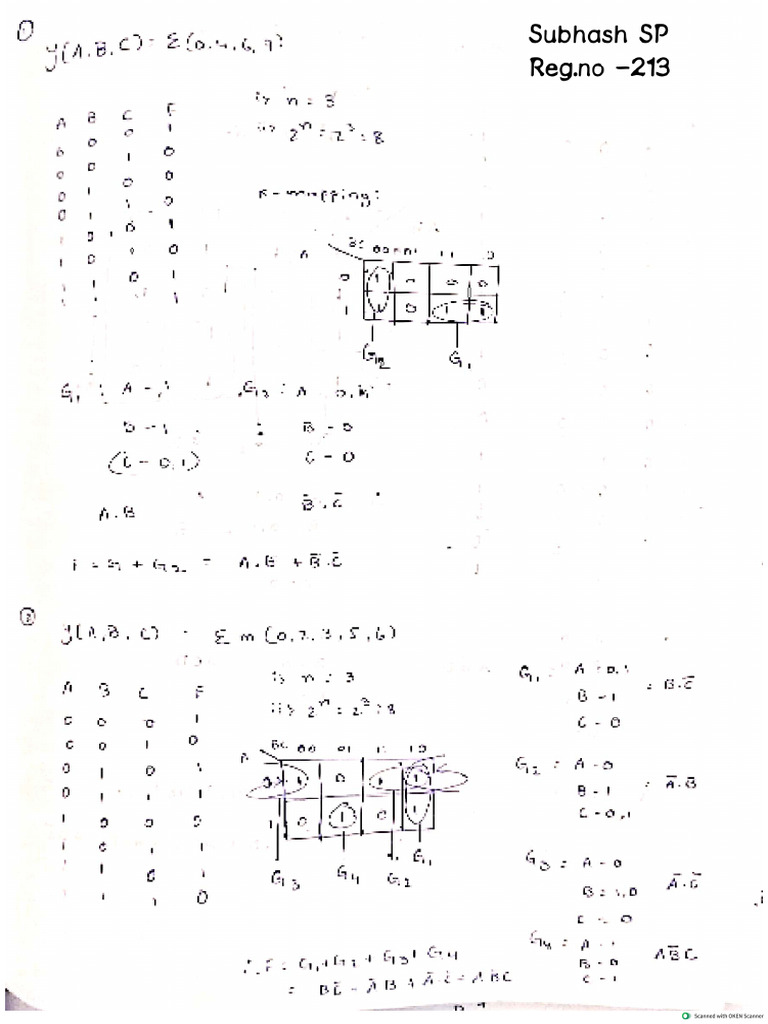 ①
y(A,B,C) = Σ(0,4,6,7)
Subhash SP
Reg.no -213
i> n = 3
ii> 2ⁿ = 2³ = 8
A B C F
0 0 1
0 0 1 0
0 1 0 0
0 1 1 0
1 0 0 1
1 0 1 0
1 0 1
1 1
K-mapping:
A BC 00 01 11 10
0 1 0 0 0
1 1 0 1 1
G₂ G₁
G₁ : A - 1 G₂ : A - 0,1
B - 1 B - 0
(C - 0,1) C - 0
A.B B̅.C̅
F = G₁ + G₂ = A.B + B̅.C̅
②
y(A,B,C) = Σ m (0,2,3,5,6)
i> n = 3
ii> 2ⁿ = 2³ = 8
A B C F
0 0 0 1
0 0 1 0
0 1 0 1
0 1 1 1
1 0 0 0
1 0 1 1
1 1 0 1
1 1 1 0
A BC 00 01 11 10
0 1 0 1 1
1 0 1 0 1
G₃ G₄ G₂ G₁
G₁ : A - 0,1
B - 1 = B.C̅
C - 0
G₂ : A - 0
B - 1 = A̅.B
C - 0,1
G₃ = A - 0
B = 1,0 A̅.C̅
C - 0
G₄ = A - 1
B - 0 AB̅C
C - 1
∴ F = G₁ + G₂ + G₃ + G₄
= BC̅ + A̅B + A̅.C̅ + AB̅C
Scanned with OKEN Scanner